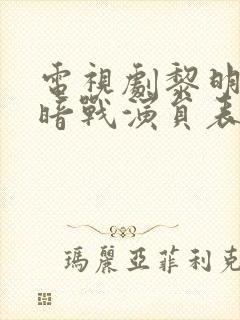 電視劇黎明
暗戰演員表
瑪麗亞菲利克